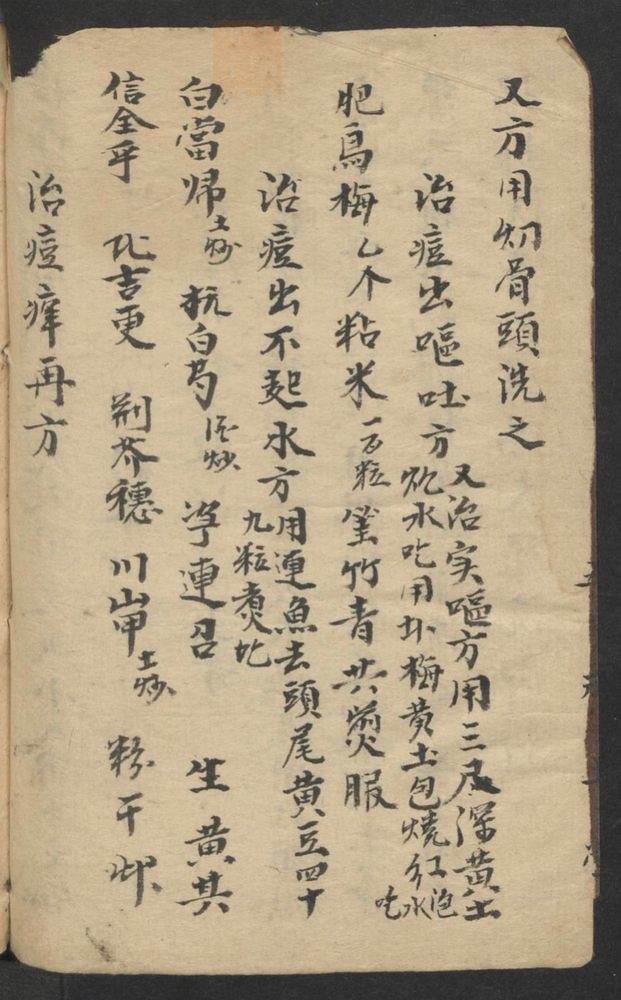 又方用切骨頭洗之
治痘出嘔吐方
又治实嘔方用三尺深黄土
炮水吃用圤梅黄土包燒红泡水吃
肥烏梅乙个粘米一百粒 篁竹青共煲服
治痘出不起水方用連魚去頭尾黄豆四十
九粒煮吃
白當归土炒 杭白芍酒炒 净連召 生黄其
信全乎 北吉更 荆芥穗 川山甲土炒 粉干
治痘痒再方